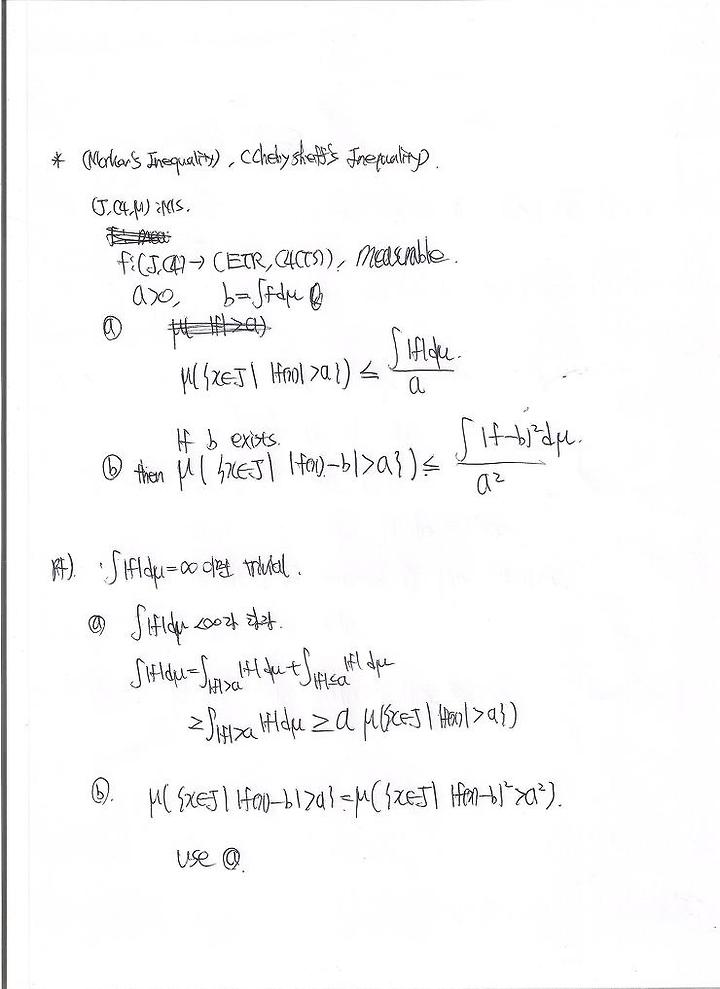 * (Markov's Inequality), (Chebysheff's Inequality).
(J, 𝒜, μ) : MS.
f: (J, 𝒜) → (EIR, 𝒜(τs)), measurable.
a>0, b=∫fdμ
ⓐ
μ({x∈J| |f(x)|>a}) ≤ ∫|f|dμ. / a
If b exists.
ⓑ then μ({x∈J| |f(x)-b|>a}) ≤ ∫|f-b|²dμ. / a²
pf). ∫|f|dμ=∞ 이면 trivial.
ⓐ ∫|f|dμ <∞라 하자.
∫|f|dμ=∫|f|>a |f| dμ+∫|f|≤a |f| dμ
≥∫|f|>a |f|dμ ≥ a μ({x∈J| |f(x)|>a})
ⓑ. μ({x∈J| |f(x)-b|>a}=μ({x∈J| |f(x)-b|²>a²}).
use ⓐ.